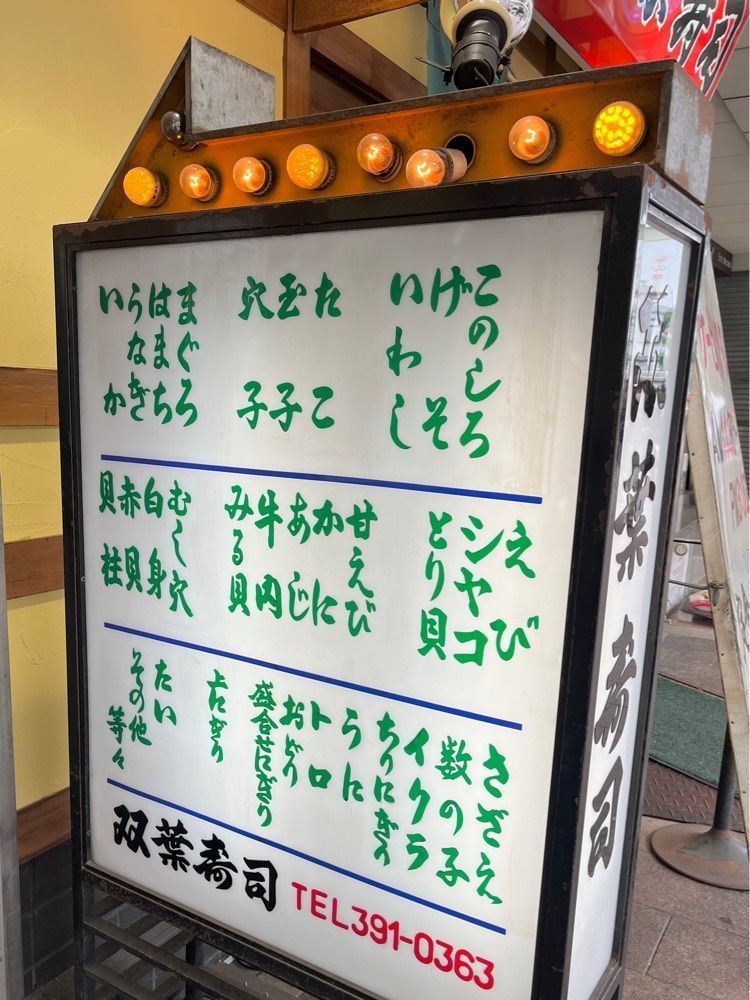 寿司
このしろ
げそ
いわし
たこ
玉子
穴子
まぐろ
はまち
うなぎ
いか
えび
シヤコ
とり貝
甘えび
かに
あじ
牛肉
みる貝
むし穴
白身
赤貝
貝柱
さざえ
数の子
イクラ
ちりにぎり
うに
トロ
おどり
盛合せにぎり
上にぎり
たい
その他
等々
双葉寿司
TEL391-0363
葉寿司